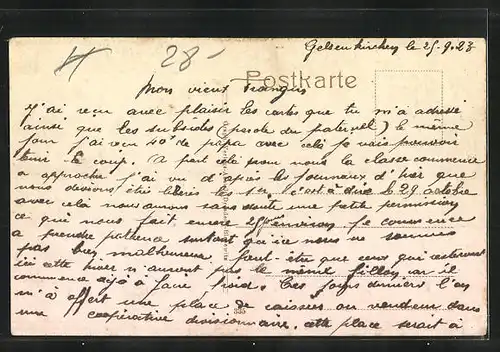 28-
Gelsenkirchen le 25-9-23
Postkarte
Mon vieux
J'ai reçu avec plaisir les cartes que tu m'a adressé
ainsi que les subsides (parole du paternel) le même
jour j'ai reçu 40f de papa avec cela je vais pouvoir
tenir le coup. A part cela pour nous la classe commence
a approcher j'ai vu d'après les journaux d'hier que
nous devions être libérés le c'est à dire le 29 octobre
avec cela nous aurons sans doute une petite permission
ce qui nous fait encore 25 environ je commence
a prendre patience surtout qu'ici nous ne sommes
pas bien malheureux peut-être que ceux qui resteront
ici cette hiver n'auront pas le même filon car il
commence déjà à faire froid. Ces jours derniers l'on
m'a offert une place de caissier ou vendeur dans
une coopérative divisionnaire. cette place serait à
333